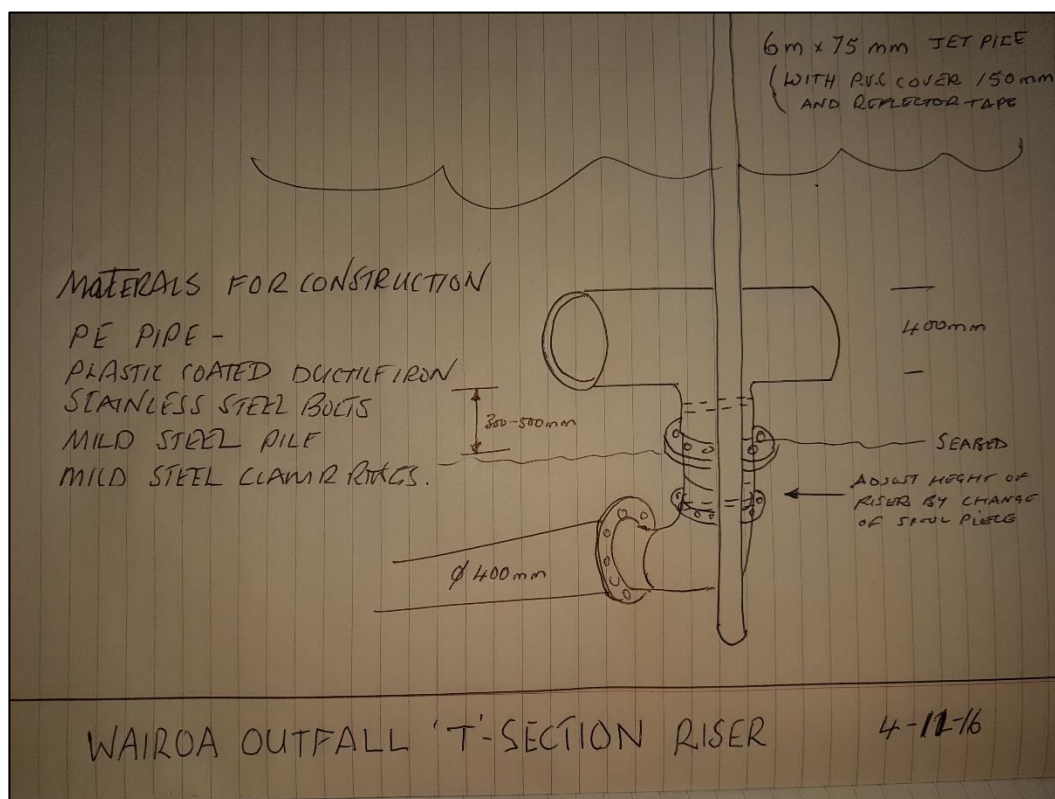 6m x 75mm JET PILE
(WITH P.V.C COVER 150mm
AND REFLECTOR TAPE
MATERALS FOR CONSTRUCTION
PE PIPE -
PLASTIC COATED DUCTILE IRON
STAINLESS STEEL BOLTS
MILD STEEL PILE
MILD STEEL CLAMP RINGS.
400mm
300-500mm
SEABED
ADJUST HEIGHT OF
RISER BY CHANGE
OF SPOUL PIECE
Ø 400mm
WAIROA OUTFALL 'T'-SECTION RISER
4-11-16